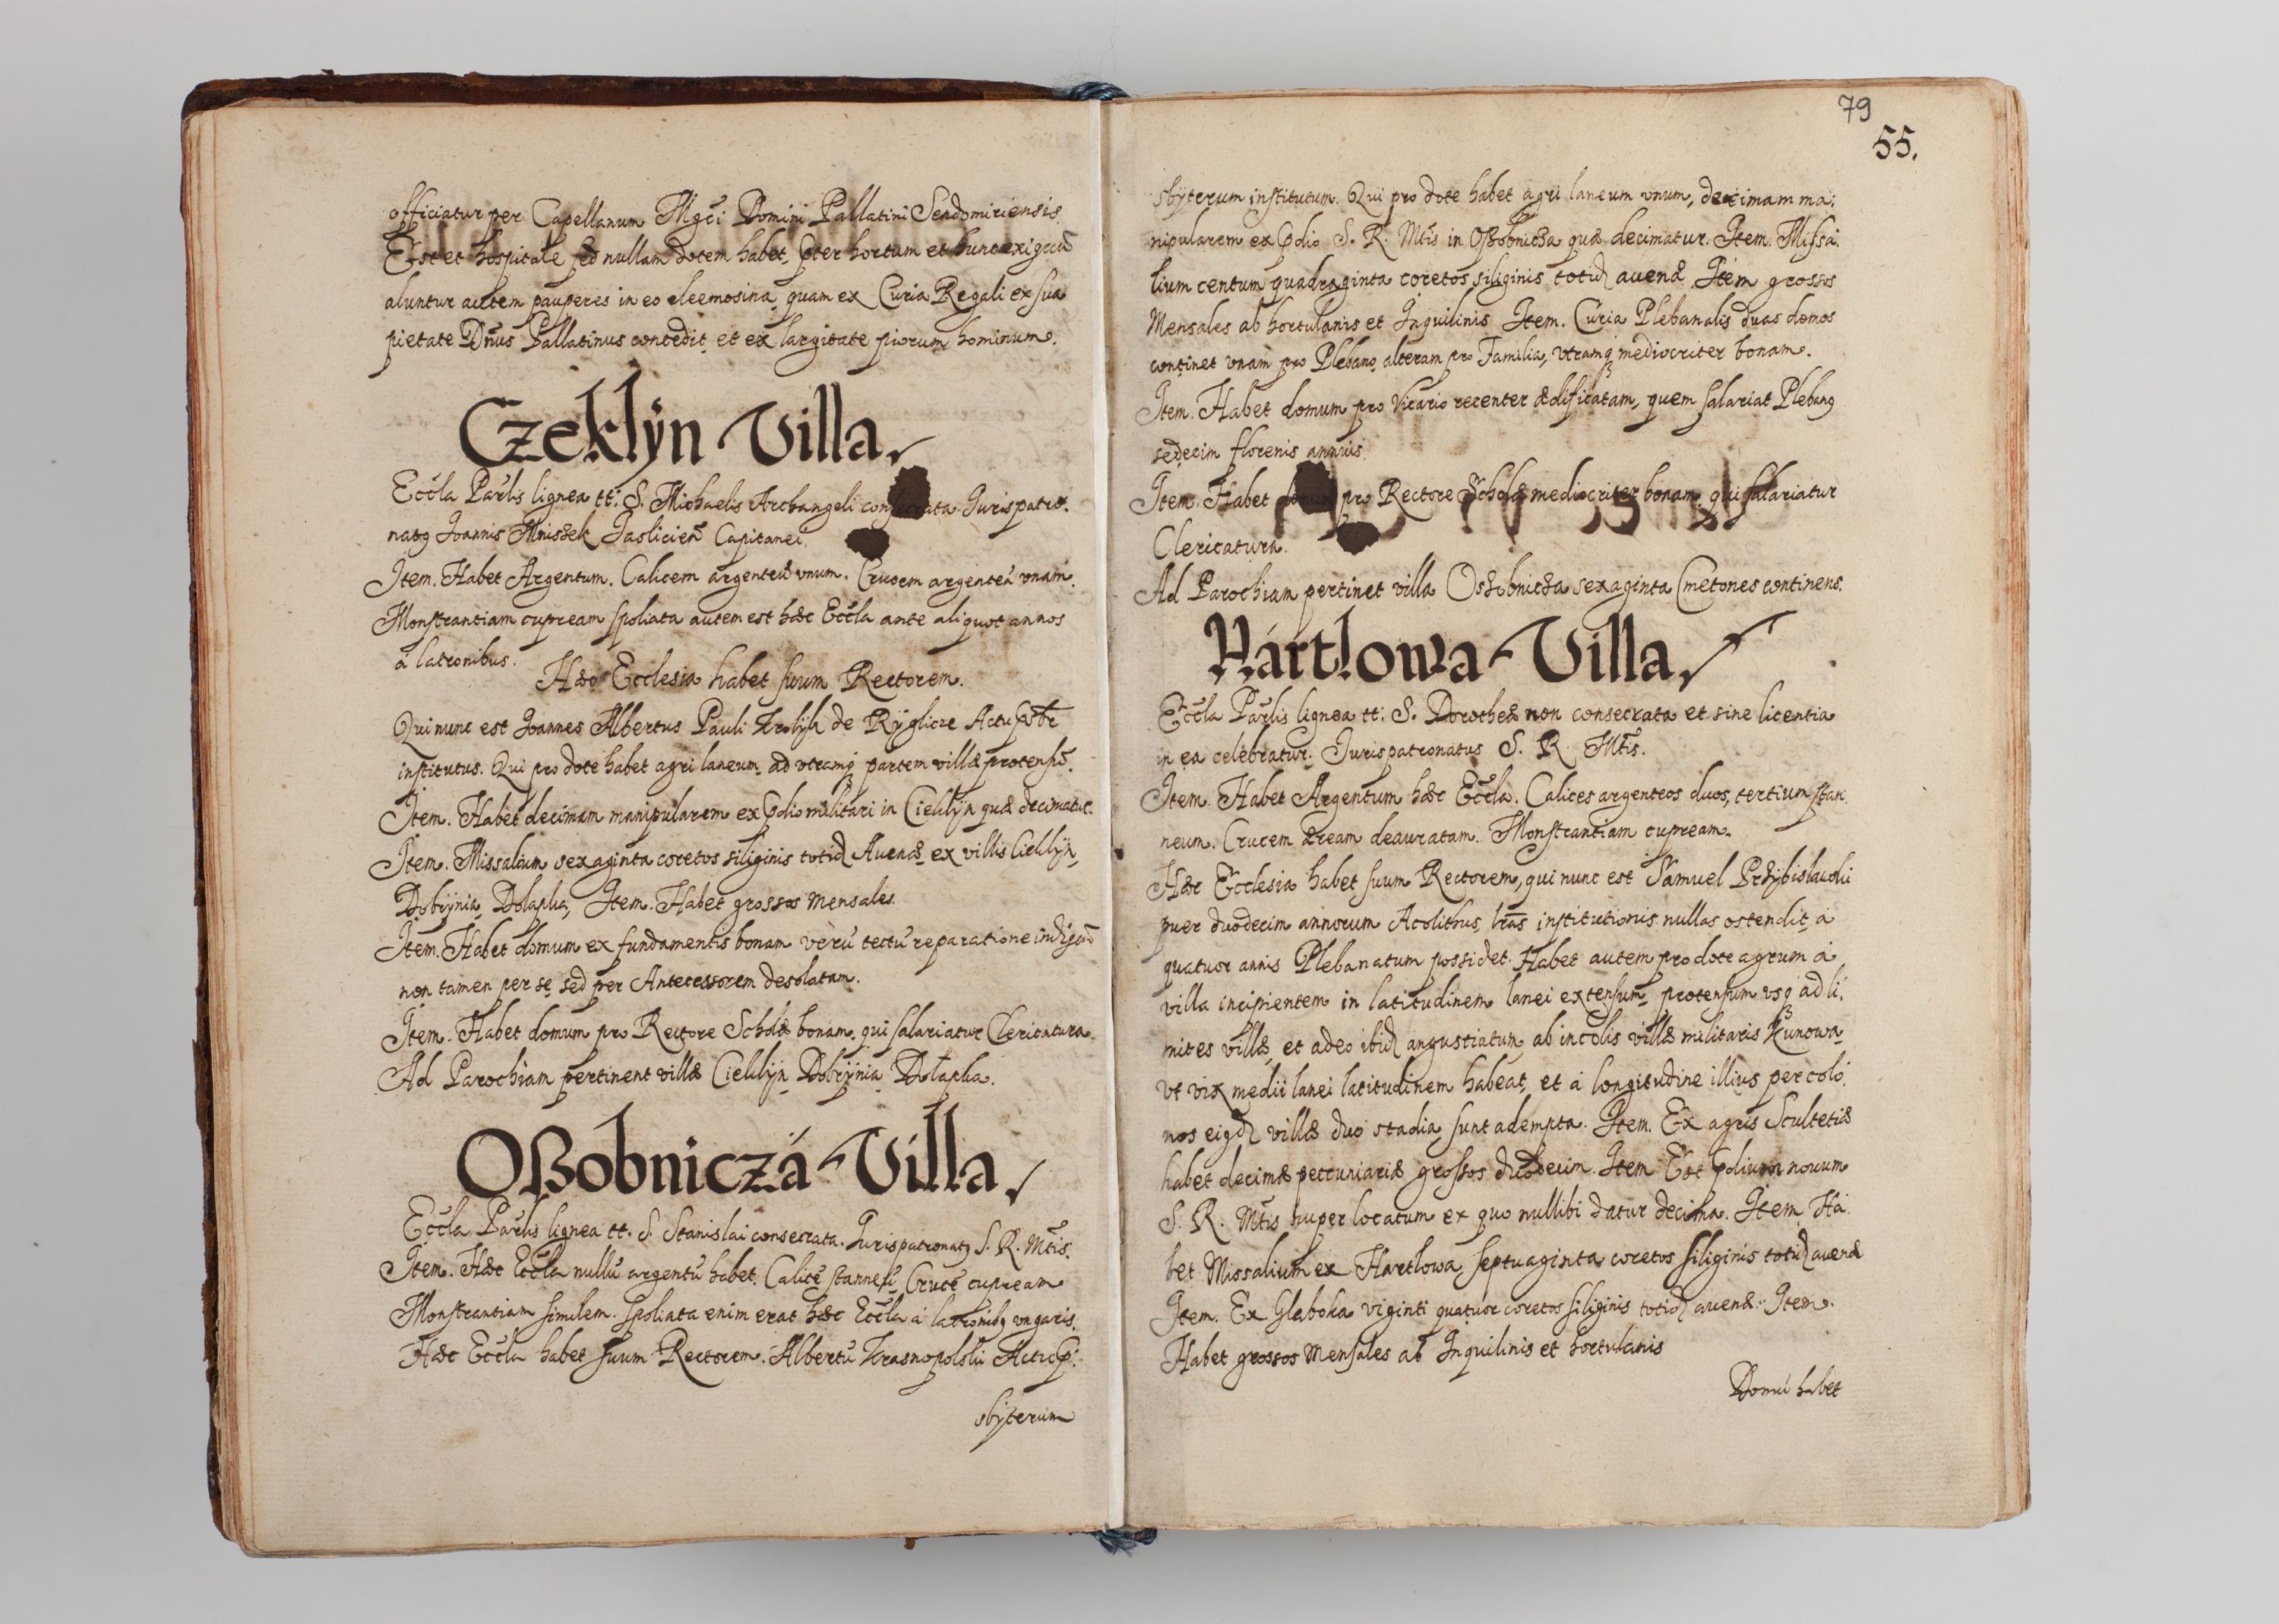 officiatur per Capellanum Mgci Domini Pallatini Sendomiriensis
Est et hospitale sed nullam dotem habet, pter hortum et hunc exiguũ
aluntur autem pauperes in eo eleemosina quam ex Curia Regali ex sua
pietate Dnus Pallatinus concedit et ex largitate piorum hominum.
Czeklÿn Villa
Eccla Parlis lignea tt: S. Michaelis Archangeli consecrata. Juris patro:
natq Joannis Mnissek Jasliciẽn Capitanei.
Item. Habet Argentum. Calicem argenteũ unum. Crucem argenteã unam.
Monstrantiam cupream spoliata autem est hæc Eccla ante aliquot annos
á latronibus.
Hæc Ecclesia habet suum Rectorem.
Qui nunc est Joannes Albertus Pauli Krolÿk de Rÿglice Actu Psbr
institutus. Qui pro dote habet agri laneum ad utramq partem villæ protensũ.
Item. Habet decimam manipularem ex Pdio militari in Cieklÿn quæ decimatur.
Item. Missalium sexaginta coretos siliginis totid Avenæ ex villis Cieklÿn,
Dobÿnia, Dolapka, Item. Habet grossos mensales.
Item. Habet domum ex fundamentis bonam verũ tectũ reparatione indigens
non tamen per se sed per Antecessorem desolatam.
Item. Habet domum pro Rectore Scholæ bonam. qui salariatur Clericatura.
Ad Parochiam pertinent villæ Cieklÿn Dobÿnia Dolapka.
Oßobniczá Villa
Eccla Parlis lignea tt. S. Stanislai consecrata. Jurispatronatq S. R. Mtis.
Item. Hæc Eccla nullũ argentũ habet. Calicẽ stanneũ, Crucẽ cupream
Monstrantiam similem. spoliata enim erat hæc Eccla á latronibq ungaris.
Hæc Eccla habet suum Rectorem. Albertũ Krasnopolskũ Actu P:
sbÿterum
79
55.
sbÿterum institutum. Qui pro dote habet agri laneum unum, decimam ma:
nipularem ex Pdio S. R. Mtis in Oßobnicza quæ decimatur. Item. Missa:
lium centum quadraginta coretos siliginis totid avenæ. Item grossos
Mensales ab hortulanis et Inquilinis Item. Curia Plebanalis duas domos
continet unam pro Plebano alteram pro Familia, utramq mediocriter bonam.
Item. Habet domum pro Vicario recenter ædificatam, quem salariat Plebanq
sedecim florenis annuis.
Item. Habet domum pro Rectore Scholæ mediocriter bonam qui salariatur
Clericatura.
Ad Parochiam pertinet villa Osobnicza sexaginta Cmetones continens.
Hártlowa Villa
Eccla Parlis lignea tt: S. Dorotheæ non consecrata et sine licentia
in ea celebratur. Jurispatronatus S. R. Mtis.
Item. Habet Argentum hæc Eccla. Calices argenteos duos, tertium stan:
neum. Crucem æream deauratam. Monstrantiam cupream.
Hæc Ecclesia habet suum Rectorem, qui nunc est Samuel Przÿbislawski
puer duodecim annorum Acolithus, lras institutionis nullas ostendit, á
quatuor annis Plebanatum possidet. Habet autem pro dote agrum á
villa incipientem in latitudinem lanei extensum, protensum usq ad li:
mites villæ, et adeo ibid angustiatum ab incolis villæ militaris Kunowa
ut vix medii lanei latitudinem habeat, et á longitudine illius per colo:
nos eiqd villæ duo stadia sunt adempta. Item. Ex agris Scultetiæ
habet decimæ pecuniariæ grossos duodecim. Item Est Pdium novum
S. R. Mtis nuper locatum ex quo nullibi datur decima. Item Ha:
bet Missalium ex Hartlowa septuaginta coretos siliginis totid avenæ
Item. Ex Gleboka viginti quatuor coretos siliginis totid avenæ. Item.
Habet grossos Mensales ab Inquilinis et hortulanis
Domũ habet